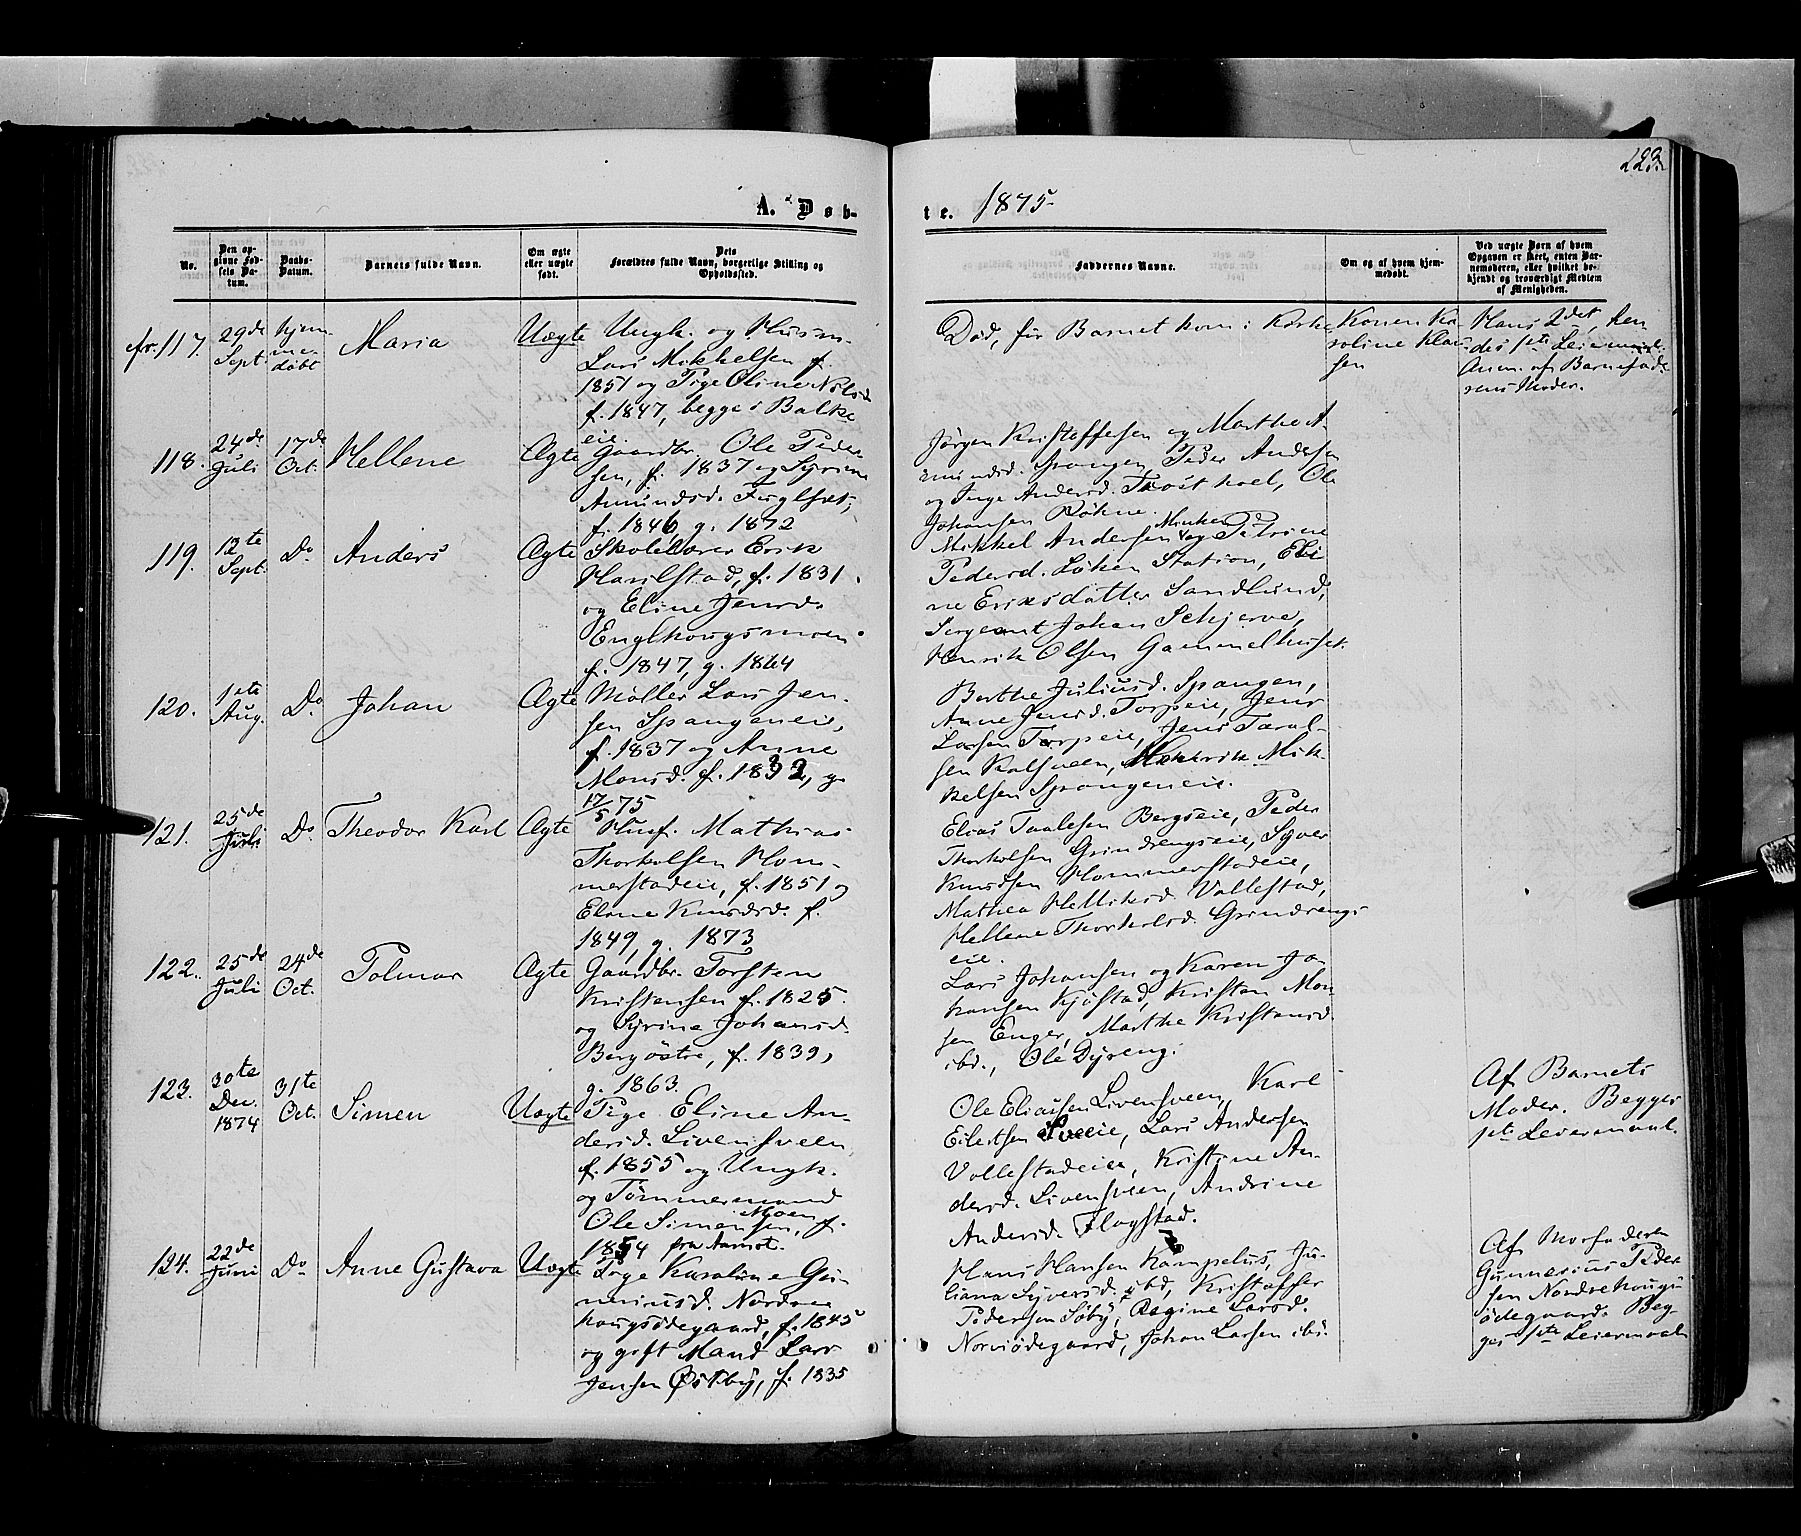 223.
A. Døb-
te. 1875.
No.
Den op-
givne Fød-
sels Da-
tum.
Daabs-
Datum.
Barnets fulde Navn.
Om ægte
eller uægte
født.
Dets
Forældres fulde Navn, borgerlige Stilling og
Opholdssted.
Faddernes Navne.
Om og af hvem hjem-
medøbt.
Ved uægte Børn af hvem
Opgaven er skeet, enten Bar-
nemoderen, eller hvilket be-
kjendt og troværdigt Medlem
af Menigheden.
117.
29de
Sept.
hjem-
me-
døbt
Maria
Uægte
Ungk. og Husm.
Lars Mikkelsen f.
1851 og Pige Oline Nilsd
f. 1847, begge i Balke
eie.
Død, før Barnet kom i Kirke
Konen Ka-
roline Klau-
sen
Hans 2det, hen
des 1ste Leiermaal.
Anm. af Barnefade
rens Moder.
118.
24de
Juli
17de
Oct.
Hellene
Ægte
Gaardbr. Ole Peder
sen, f. 1837 og Syrine
Amundsd.
f. 1846, g. 1872
Jørgen Kristoffersen og Marthe A-
mundsd. Spangen, Peder Andersen
og Inge Andersd. Ole
Johansen Røhne.
119.
12te
Sept.
Do
Anders
Ægte
Skolelærer Erik
f. 1831.
og Eline Jensd.
Englhougsmoen
f. 1847, g. 1864
Mikkel Andersen og Petrine
Pedersd. Løken Station, Eli
ne Eriksdatter Sandlund,
Sergeant Johan Schjerve,
Henrik Olsen Gammelhuset.
120.
1ste
Aug.
Do
Johan
Ægte
Møller Lars Jen-
sen Spangeneie,
f. 1837 og Anne
Monsd. f. 1832, g.
17/5 75
Berthe Juliusd. Spangen,
Anne Jensd. Torpeie, Jens
Larsen Torpeie, Jens Taral-
sen Kalsveen, Henrik Mik-
kelsen Spangeneie.
121.
25de
Juli
Do
Theodor Karl
Ægte
Husf. Mathias
Thorkelsen Hom-
merstadeie, f. 1851 og
Eline Knudsd. f.
1849, g. 1873
Elias Taalesen Bergseie, Peder
Thorkelsen Grindrengseie, Syver
Knudsen Hommerstadeie,
Mathea Helliksd. Vollestad,
Hellene Thorkelsd. Grindrengs
eie.
122.
25de
Juli
24de
Oct.
Tolmar
Ægte
Gaardbr. Torsten
Kristensen f. 1825.
og Syrine Johansd.
Berg østre, f. 1839,
g. 1863.
Lars Johansen og Karen Jo-
hansen Kjøstad, Kristen Mon-
sen Enger, Marthe Kristensd.
ibd., Ole Dyreng.
123.
30te
Dec.
1874
31te
Oct.
Simen
Uægte
Pige Eline An-
dersd. Livensveen,
f. 1855 og Ungk.
og Tømmermand
Ole Simensen Moen, f.
1854 fra Aamot.
Ole Eliassen Livensveen, Karl
Eilertsen Sveeie, Lars Andersen
Vollestadeie, Kristine An-
dersd. Livensveen, Andrine
Andersd. Flagstad.
Af Barnets
Moder. Begges
1ste Leiermaal.
124.
22de
Juni
Do
Anne Gustava
Uægte
Pige Karoline Gu-
neriusd. Nordre
hougsødegaard, f. 1845
og gift Mand Lars
Jensen Østby, f. 1835
Hans Hansen Kampelus, Ju-
liana Syversd. ibd, Kristoffer
Pedersen Søby, Regine Larsd.
Norsødegaard, Johan Larsen ibd.
Af Morfaderen
Gunnerius Peder
sen Nordrehougs
ødegaard. Beg-
ges 1ste Leiermaal